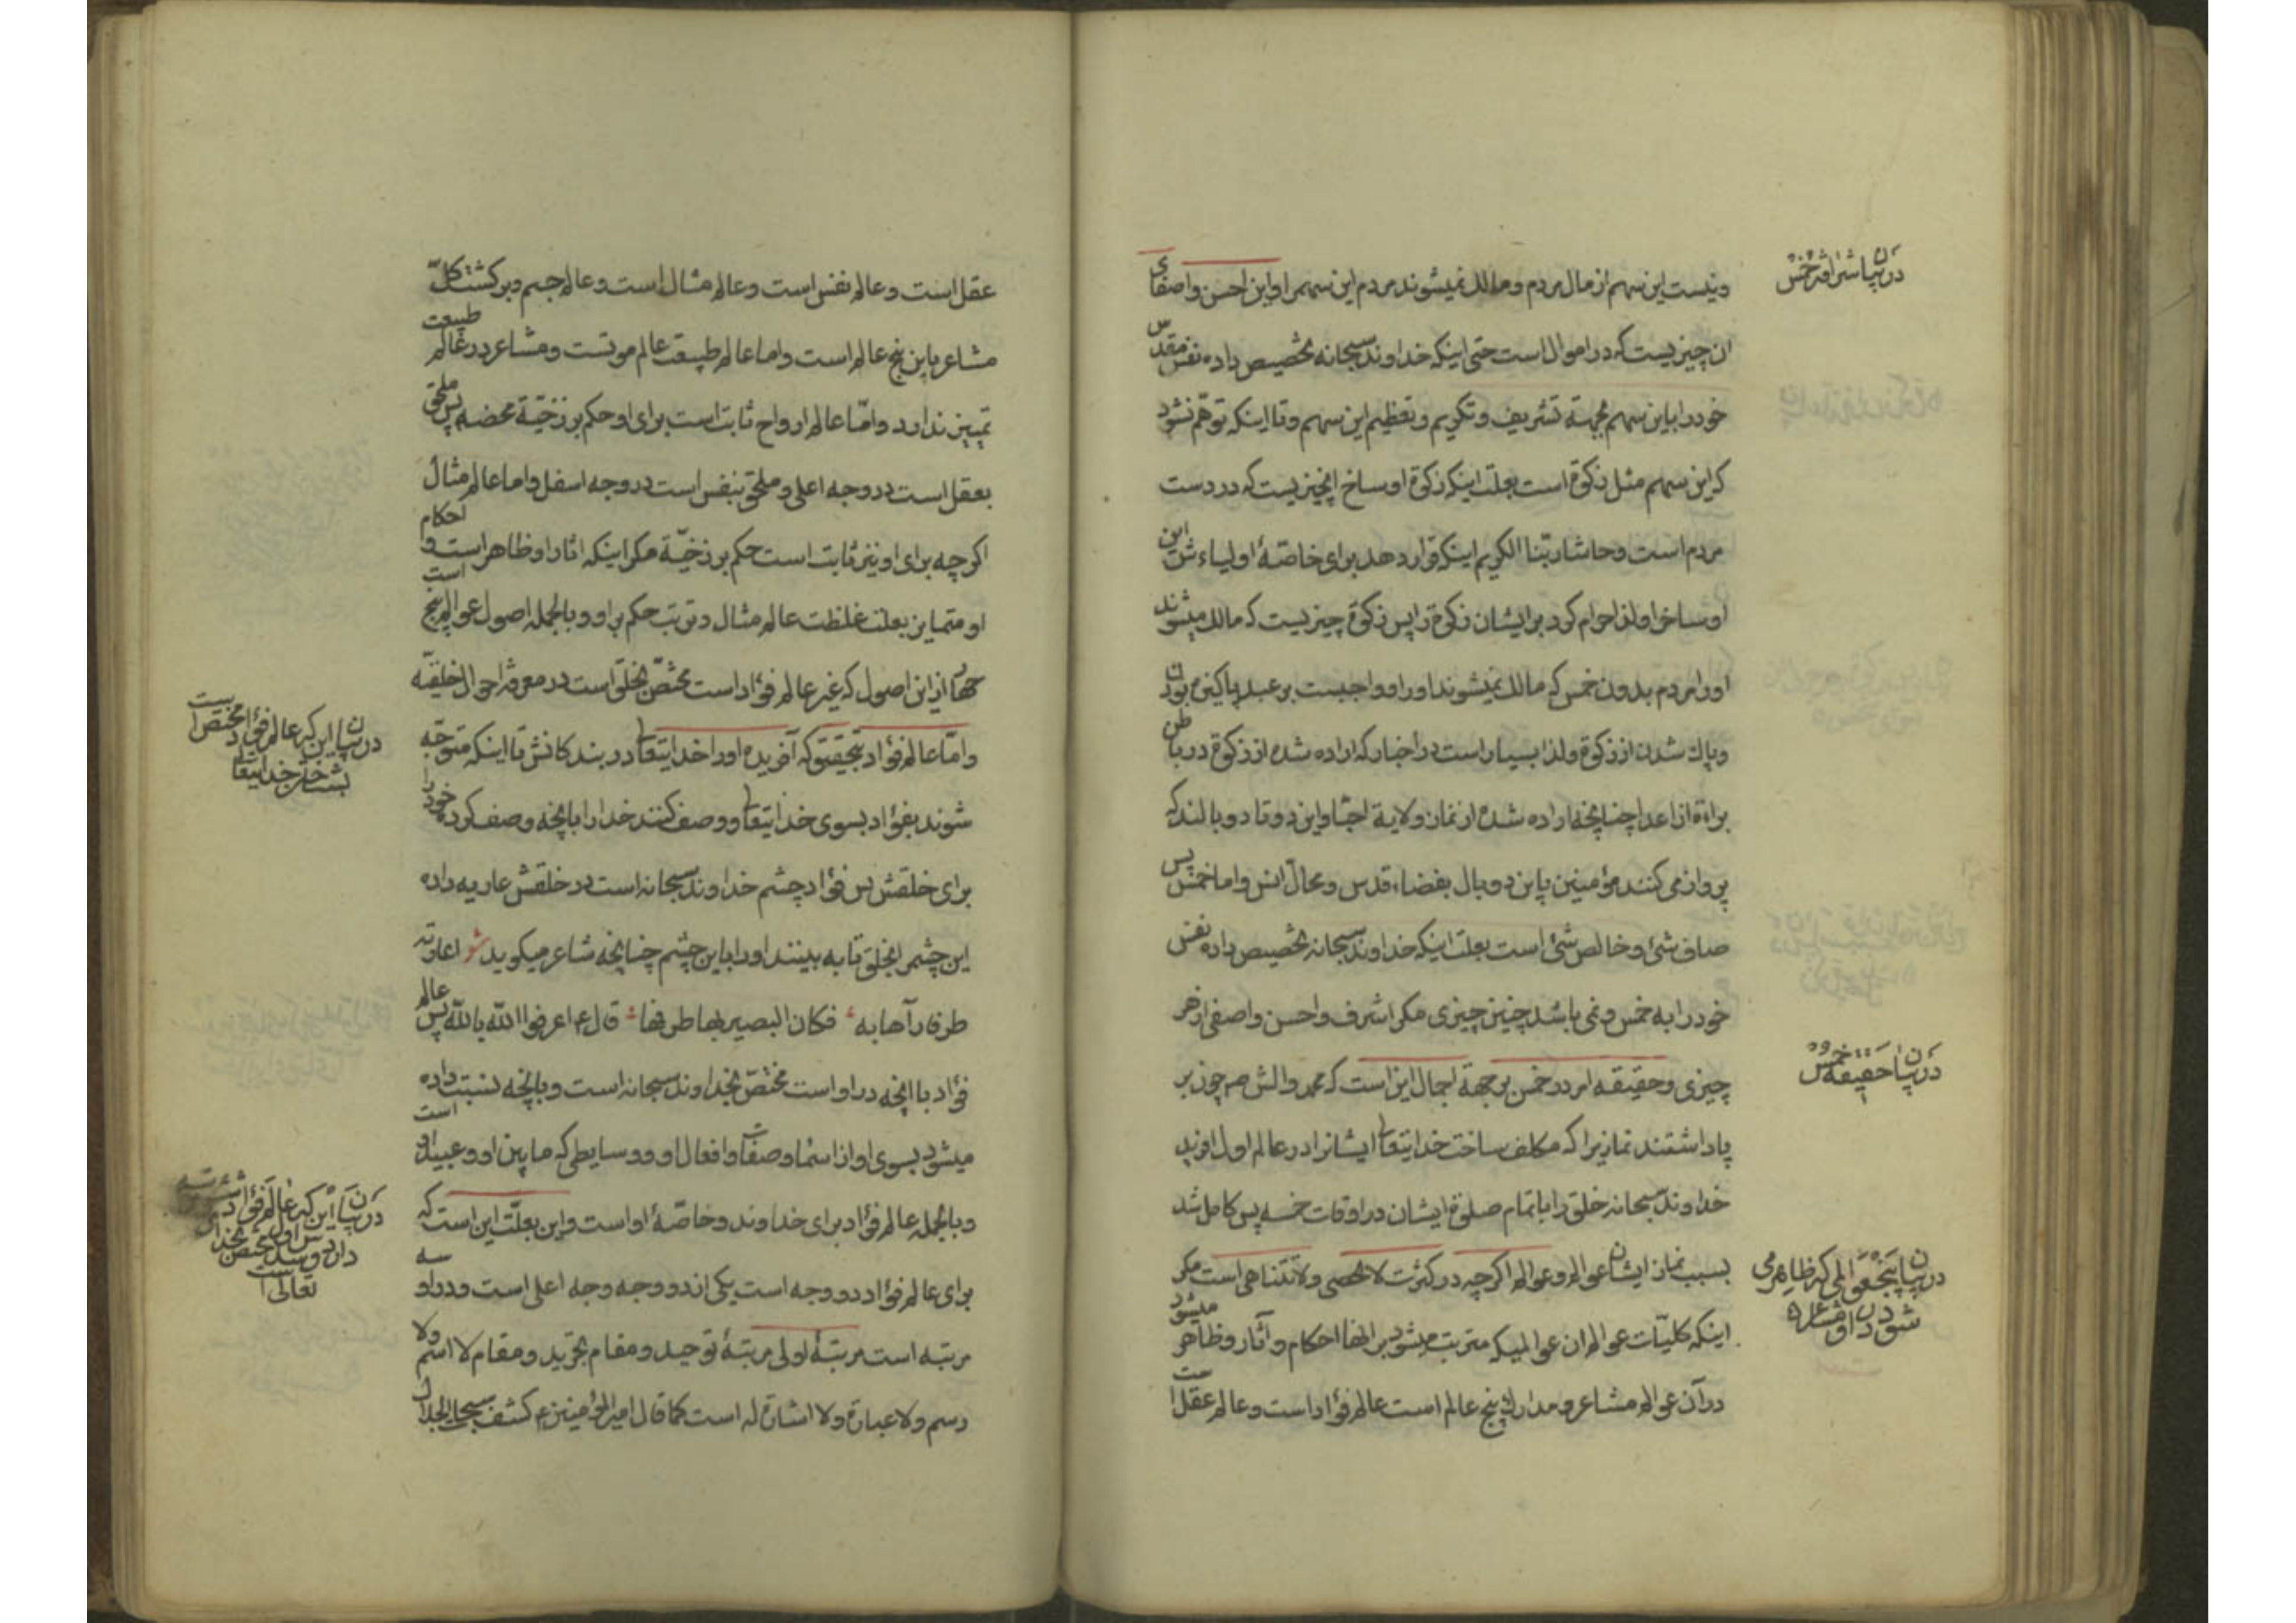 در بیان شرافت خمس
و نیست این سهم از مال مردم و مالك نمیشوند مردم این سهم را و این احسن و اصفای
ان چیزیست که در اموال است حتی اینکه خداوند سبحانه تخصیص داده نفس مقدس
خود را باین سهم بجهة تشریف و تکریم و تعظیم این سهم و تا اینکه توهم نشود
که این سهم مثل زکوة است بعلت اینکه زکوة اوساخ انچیزیست که در دست
مردم است و حاشا ربنا الکریم اینکه قرار دهد برای خاصّهٔ اولیاءش این
اوساخ را و لذا حرام کرد بر ایشان زکوة را پس زکوة چیزیست که مالك میشوند
او را مردم بدون خمس که مالك نمیشوند او را و واجبست بر عبد پاکیزه بودن
و پاك شدن از زکوة و لذا بسیار است در اخبار که اراده شده از زکوة در باطن
براءة از اعدا چنانچه اراده شده از نماز ولایة احبا و این دو تا دو بالند که
پرواز می کنند مؤمنین باین دو بال بفضاء قدس و محالّ انس و اما خمس پس
صاف شئ و خالص شئ است بعلت اینکه خداوند سبحانه تخصیص داده نفس
خود را به خمس و نمی باشد چنین چیزی مکر اشرف و احسن و اصفی از هر
در بیان حقیقة خمس
چیزی و حقیقه امر در خمس بر جهة اجمال این است که محمد و الش صم چون بر
پا داشتند نماز را که مکلف ساخت خدایتعالی ایشانرا در عالم اول افرید
خداوند سبحانه خلق را باتمام صلوة ایشان در اوقات خمسه پس کامل شد
در بیان پنج عوالمی که ظاهر می
شود در او مشاعر
بسبب نماز ایشان عوالم و عوالم اکرچه در کثرت لا تحصی و لا تتناهی است مکر
اینکه کلیّات عوالم ان عوالمیکه مترتب میشود بر انها احکام و آثار و ظاهر میشود
در آن عوالم مشاعر و مدارك پنج عالم است عالم فؤاد است و عالم عقل است
عقل است و عالم نفس است و عالم مثال است و عالم جسم و برکشت کلّ
مشاعر باین پنج عالم است و اما عالم طبیعت عالم موتست و مشاعر در عالم طبیعت
تمییز ندارد و امّا عالم ارواح ثابت است برای او حکم برزخیّة محضه پس ملحق
بعقل است در وجه اعلی و ملحق بنفس است در وجه اسفل و اما عالم مثال
اکرچه برای او نیز ثابت است حکم برزخیّة مکر اینکه اثار او ظاهر است و احکام
او متمایز بعلت غلظت عالم مثال و ترتب حکم بر او و بالجمله اصول عوالم پنج است
چهار از این اصول که غیر عالم فؤاد است مختصّ بخلق است در معرفة احوال خلیقه
در بیان این که عالم فؤاد مختص است
بشناختن خدایتعالی
و امّا عالم فؤاد بتحقیق که آفریده او را خدایتعالی در بندکانش تا اینکه متوجّه
شوند بفؤاد بسوی خدایتعالی و وصف کنند خدا را بانچه وصف کرده خود را
برای خلقش پس فؤاد چشم خداوند سبحانه است در خلقش عاریه داده
این چشم را بخلق تا به بینند او را باین چشم چنانچه شاعر میکوید شو اعارته
طرفا رآها به فکان البصیر بها طرفها قال ع اعرفوا اللّه باللّه پس عالم
فؤاد با انچه در او است مختصّ بخداوند سبحانه است و بانچه نسبت داده
میشود بسوی او از اسما و صفات و افعال او و وسایطی که مابین او و عبید او است
در بیان این که عالم فؤاد
مختص بخدای
تعالی است
و بالجمله عالم فؤاد برای خداوند و خاصّهٔ او است و این بعلّت این است که
برای عالم فؤاد دو وجه است یکی از دو وجه وجه اعلی است و در او سه
مرتبه است مرتبهٔ اولی مرتبهٔ توحید و مقام تجرید و مقام لا اسم و لا
رسم و لا عبارة و لا اشارة له است کما قال امیر المؤمنین ع کشف سبحات الجلال